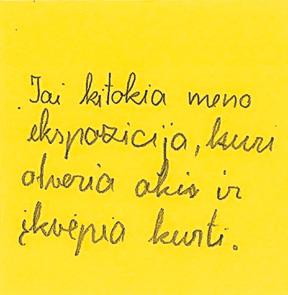 Tai kitokia meno
ekspozicija, kuri
atveria akis ir
įkvepia kurti.